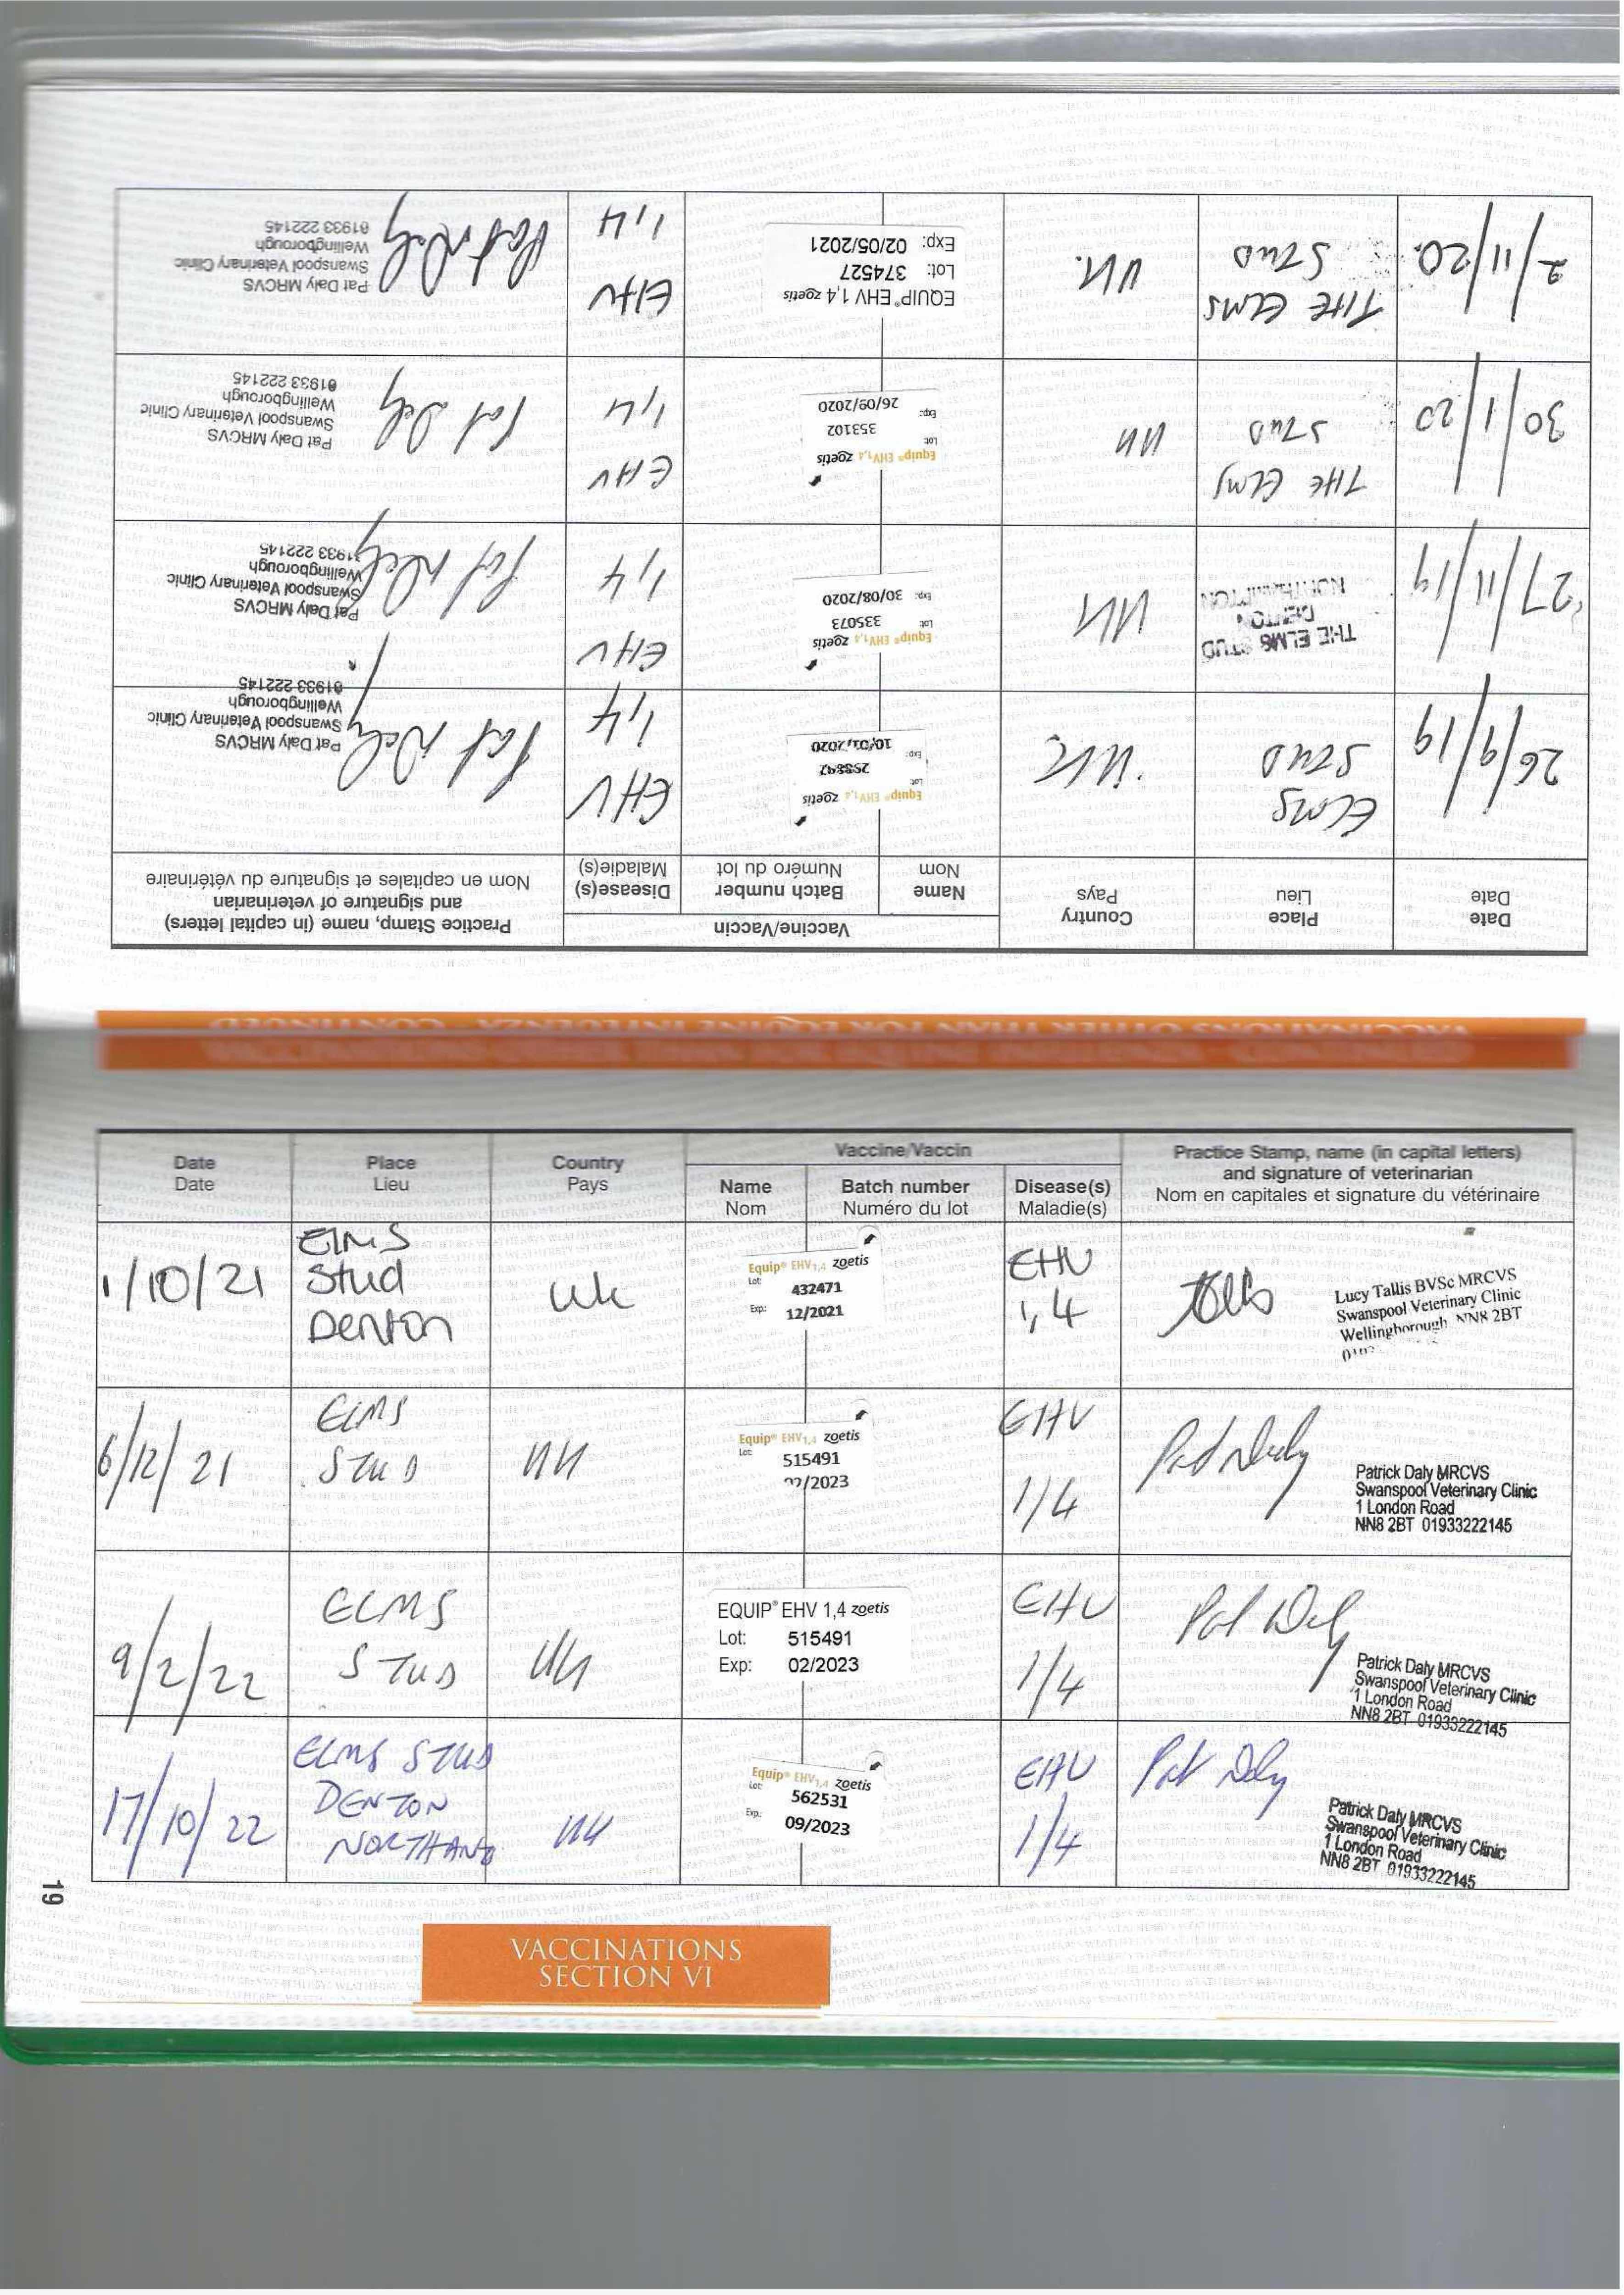 VACCINATIONS OTHER THAN FOR EQUINE INFLUENZA - CONTINUED
Date
Date
Place
Lieu
Country
Pays
Vaccine/Vaccin
Name
Nom
Batch number
Numéro du lot
Disease(s)
Maladie(s)
Practice Stamp, name (in capital letters)
and signature of veterinarian
Nom en capitales et signature du vétérinaire
26/9/19
ELMS
STUD
UK
Equip® EHV 1,4 zoetis
Lot:
Exp: 10/01/2020
EHV
1,4
Pat Daly
Pat Daly MRCVS
Swanspool Veterinary Clinic
Wellingborough
01933 222145
27/11/19
THE ELMS STUD
DENTON
NORTHAMPTON
UK
Equip® EHV 1,4 zoetis
Lot: 335073
Exp: 30/08/2020
EHV
1,4
Pat Daly
Pat Daly MRCVS
Swanspool Veterinary Clinic
Wellingborough
01933 222145
30/1/20
THE ELMS
STUD
UK
Equip® EHV 1,4 zoetis
Lot: 353102
Exp: 26/09/2020
EHV
1,4
Pat Daly
Pat Daly MRCVS
Swanspool Veterinary Clinic
Wellingborough
01933 222145
2/11/20.
THE ELMS
STUD
UK.
EQUIP® EHV 1,4 zoetis
Lot: 374527
Exp: 02/05/2021
EHV
1,4
Pat Daly
Pat Daly MRCVS
Swanspool Veterinary Clinic
Wellingborough
01933 222145
Date
Date
Place
Lieu
Country
Pays
Vaccine/Vaccin
Name
Nom
Batch number
Numéro du lot
Disease(s)
Maladie(s)
Practice Stamp, name (in capital letters)
and signature of veterinarian
Nom en capitales et signature du vétérinaire
1/10/21
Elms
Stud
Denton
Uk
Equip® EHV 1,4 zoetis
Lot: 432471
Exp: 12/2021
EHV
1,4
Lucy Tallis BVSc MRCVS
Swanspool Veterinary Clinic
Wellingborough NN8 2BT
6/12/21
ELMS
STUD
UK
Equip® EHV 1,4 zoetis
Lot: 515491
/2023
EHV
1/4
Pat Daly
Patrick Daly MRCVS
Swanspool Veterinary Clinic
1 London Road
NN8 2BT 01933222145
9/2/22
ELMS
STUD
UK
EQUIP® EHV 1,4 zoetis
Lot: 515491
Exp: 02/2023
EHV
1/4
Pat Daly
Patrick Daly MRCVS
Swanspool Veterinary Clinic
1 London Road
NN8 2BT 01933222145
17/10/22
ELMS STUD
DENTON
NORTHANTS
UK
Equip® EHV 1,4 zoetis
Lot: 562531
Exp: 09/2023
EHV
1/4
Pat Daly
Patrick Daly MRCVS
Swanspool Veterinary Clinic
1 London Road
NN8 2BT 01933222145
19
VACCINATIONS
SECTION VI